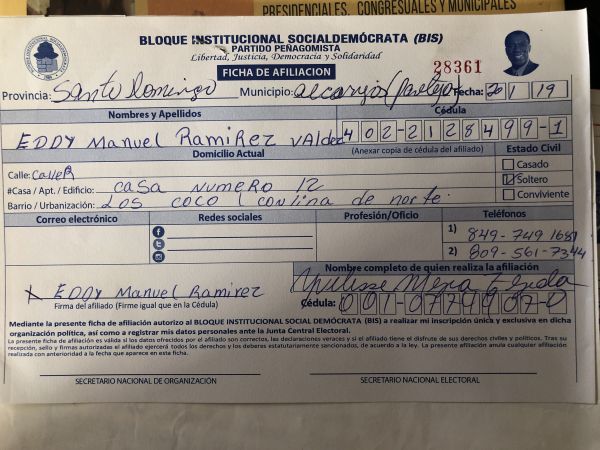 PRESIDENCIALES, CONGRESUALES Y MUNICIPALES
BLOQUE INSTITUCIONAL SOCIALDEMÓCRATA (BIS)
PARTIDO PEÑAGOMISTA
Libertad, Justicia, Democracia y Solidaridad
FICHA DE AFILIACION
28361
Provincia: Santo Domingo Municipio: Fecha: 20 1 19
Nombres y Apellidos Cédula
EDDY Manuel RamiRez VAldez 402-2128499-1
Domicilio Actual (Anexar copia de cédula del afiliado) Estado Civil
Calle: Calle R Casado
#Casa / Apt. / Edificio: casa numero 12 Soltero
Barrio / Urbanización: Los coco de norte Conviviente
Correo electrónico Redes sociales Profesión/Oficio Teléfonos
1) 849-749 1681
2) 809-561-7344
Nombre completo de quien realiza la afiliación
X EDDY Manuel Ramirez
Firma del afiliado (Firme igual que en la Cédula) Cédula:
Mediante la presente ficha de afiliación autorizo al BLOQUE INSTITUCIONAL SOCIAL DEMÓCRATA (BIS) a realizar mi inscripción única y exclusiva en dicha
organización política, así como a registrar mis datos personales ante la Junta Central Electoral.
La presente ficha de afiliación es válida si los datos ofrecidos por el afiliado son correctos, las declaraciones veraces y si el afiliado tiene el disfrute de sus derechos civiles y políticos. Tras su
recepción, sello y firmas autorizadas el afiliado ejercerá todos los derechos y los deberes estatutariamente sancionados, de acuerdo a la ley. La presente afiliación anula cualquier afiliación
realizada con anterioridad a la fecha que aparece en esta ficha.
SECRETARIO NACIONAL DE ORGANIZACIÓN SECRETARIO NACIONAL ELECTORAL